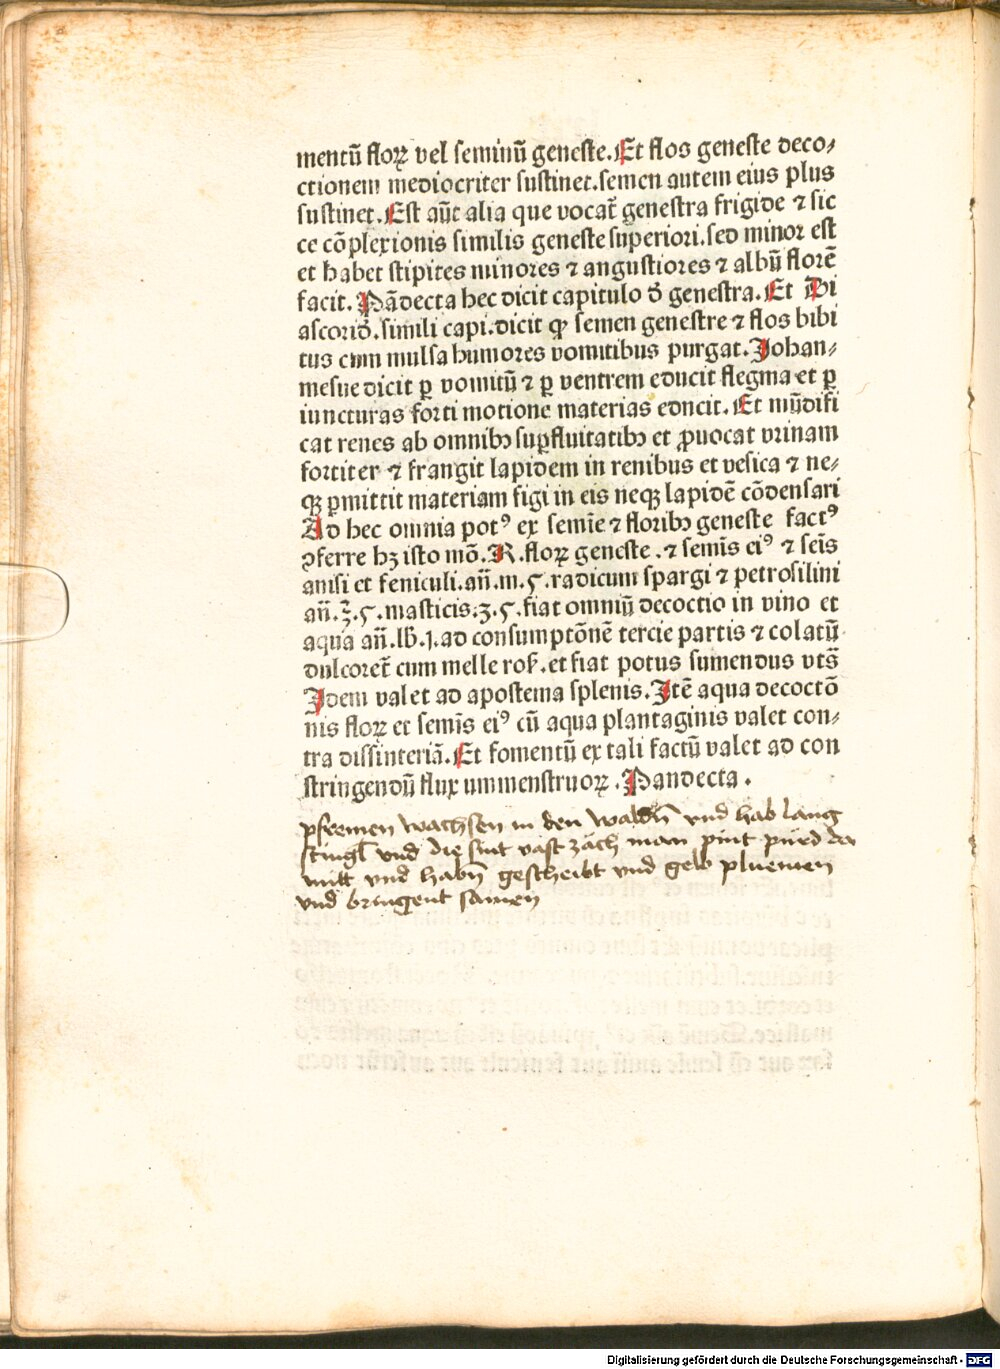 mentū floꝝ vel seminū geneste. Et flos geneste deco⸗
ctionem mediocriter sustinet. semen autem eius plus
sustinet. Est aūt alia que vocat̄ genestra frigide ⁊ sic
ce cōplexionis similis geneste superiori. sed minor est
et habet stipites minores ⁊ angustiores ⁊ albū florē
facit. Pādecta hec dicit capitulo đ genestra. Et Di
ascoriđ. simili capi. dicit ꝙ semen genestre ⁊ flos bibi
tus cum mulsa humores vomitibus purgat. Johan⸗
mesue dicit ꝑ vomitū ⁊ ꝑ ventrem educit flegma et ꝑ
iuncturas forti motione materias educit. Et mūdifi
cat renes ab omnibꝫ suꝑfluitatibꝫ et ꝓuocat vrinam
fortiter ⁊ frangit lapidem in renibus et vesica ⁊ ne⸗
qꝫ ꝑmittit materiam figi in eis neqꝫ lapidē cōdensari
Ad hec omnia potꝰ ex semīe ⁊ floribꝫ geneste factꝰ
ꝯferre hꝫ isto mō. R. floꝝ geneste. ⁊ semīs eiꝰ ⁊ seīs
anisi et feniculi. añ. m. ς. radicum spargi ⁊ petrosilini
añ. ℥. ς. masticis. ʒ. ς. fiat omniū decoctio in vino et
aqua añ. lƀ. j. ad consumptōnē tercie partis ⁊ colatū
dulcoret̄ cum melle roſ. et fiat potus sumendus vts̄
Jdem valet ad apostema splenis. Jtē aqua decoctō
nis floꝝ et semīs eiꝰ cū aqua plantaginis valet con⸗
tra dissinteriā. Et fomentū ex tali factū valet ad con
stringendū flux um menstruoꝝ. Pandecta.
pfremen wachsen in den waldn̄ vnd hab lang
stingl vnd die sint vast zäch man pint pürd da
mitt vnd habn̄ gescheibt vnd gelb pluemen
vnd bringent samen
Digitalisierung gefördert durch die Deutsche Forschungsgemeinschaft - DFG